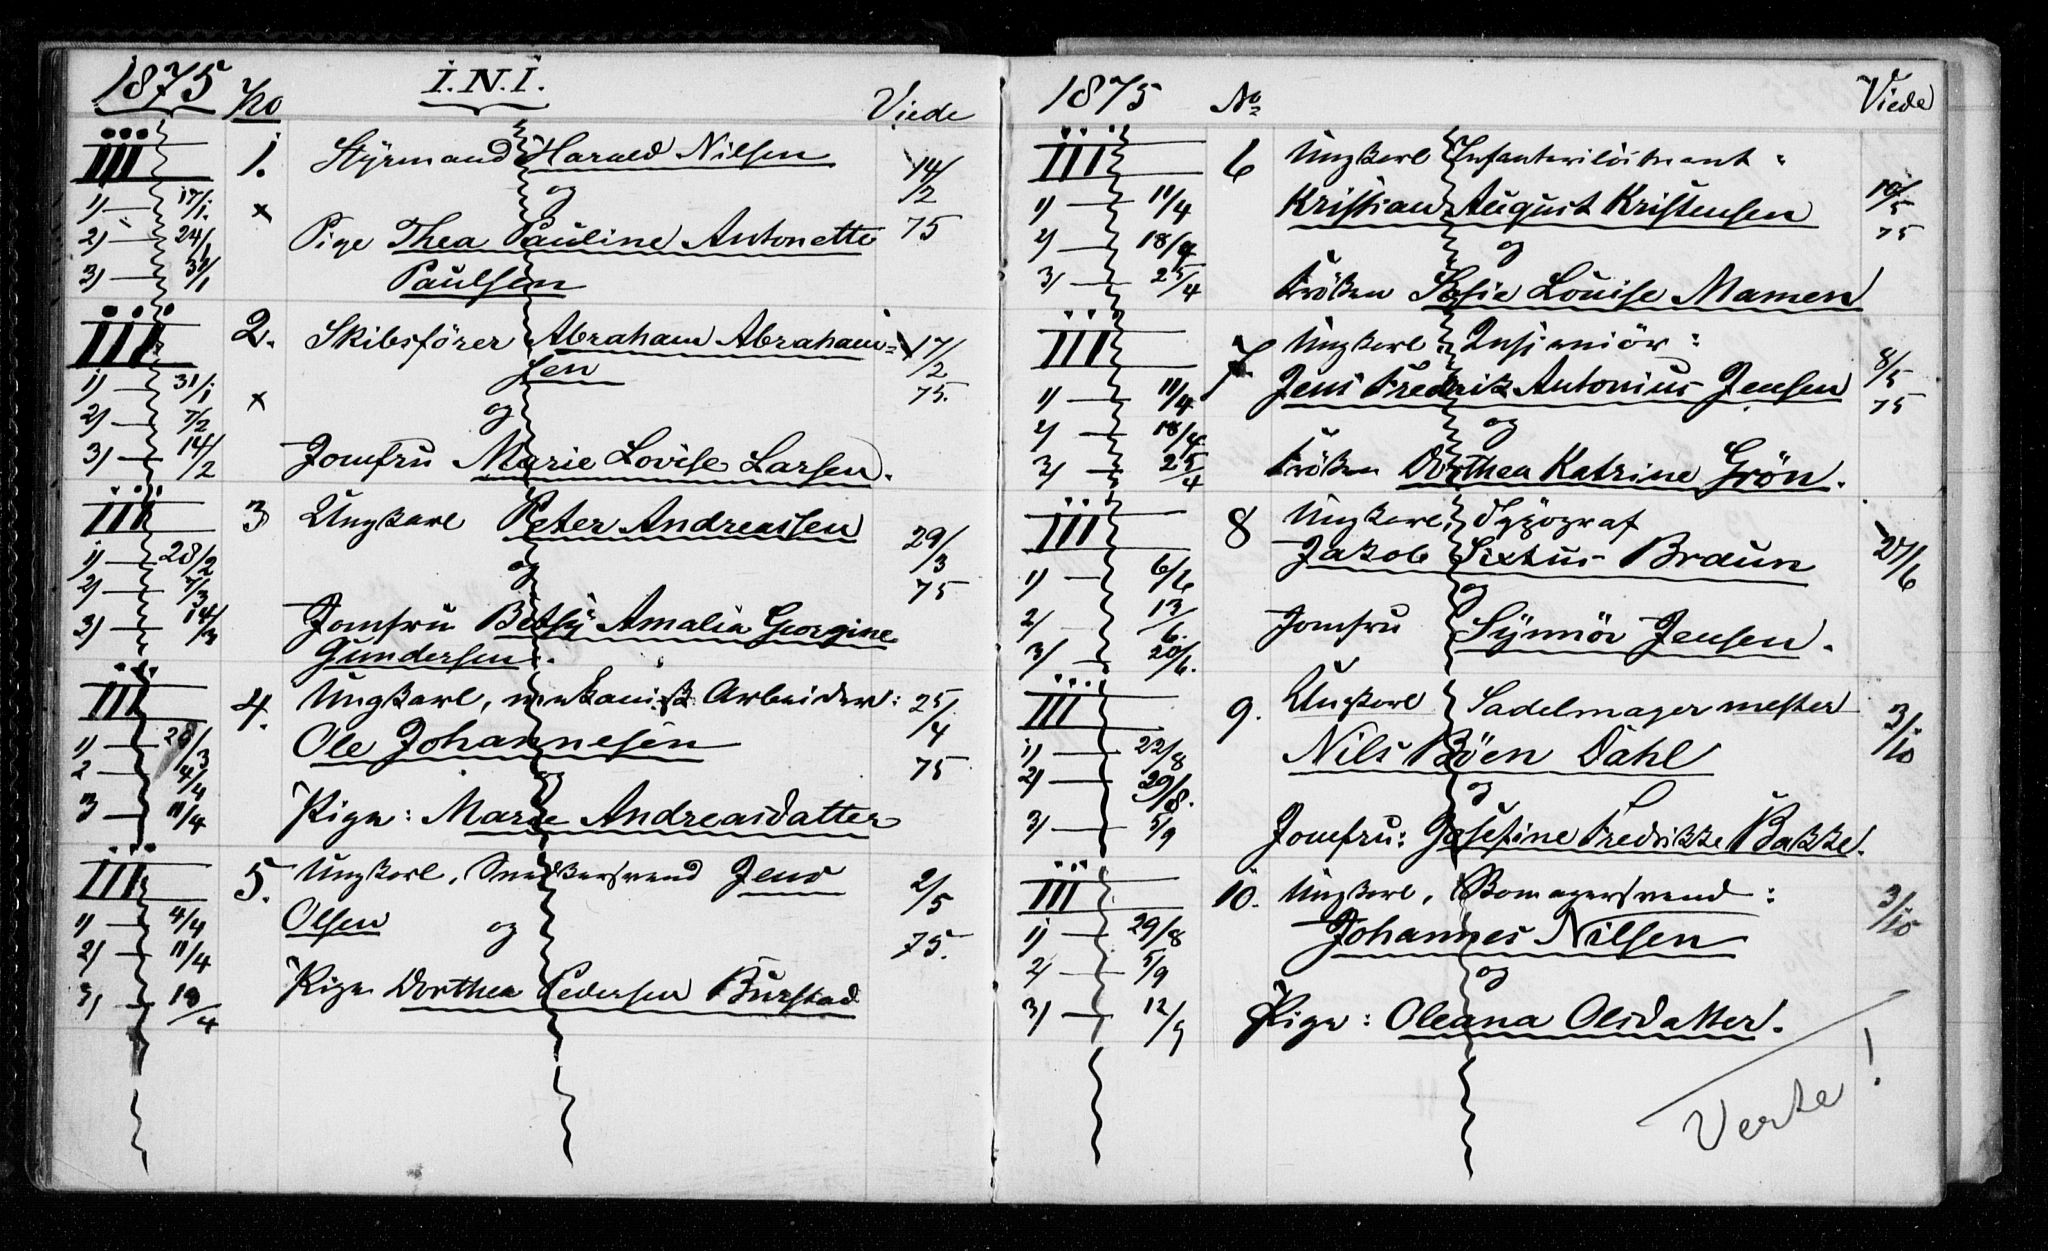 1875 No I.N.I. Viede
III 1. Styrmand Harald Nilsen 14/2 75
1) — 17/1. x og
2) — 24/1 Pige Thea Pauline Antonette
3) — 31/1 Paulsen
III 2. Skibsförer Abraham Abraham= 17/2 75.
1) — 31/1 sen
2) — 7/2 x og
3) — 14/2 Jomfru Marie Lovise Larsen.
III 3 Ungkarl Peter Andreassen 29/3 75
1) — 28/2 og
2) — 7/3 Jomfru Betsy Amalia Georgine
3) — 14/3 Gundersen.
III 4. Ungkarl, mekanisk Arbeider: 25/4 75
1) — 28/3 Ole Johannesen
2 — 4/4 og
3 — 11/4 Pige: Marie Andreasdatter
III 5. Ungkarl, Snedkersvend Jens 2/5 75.
1) — 4/4 Olsen og
2) — 11/4
3) — 18/4 Pige Dorthea Pedersen Burstad
1875 No Viede
III 6 Ungkarl Infanterilöitnant: 10/5 75
1) — 11/4 Kristian August Kristensen
2) — 18/4 og
3) — 25/4 Fröken Sofie Louise Mamen
III 7 Ungkarl Insieniör: 8/5 75
1) — 11/4 Jens Fredrik Antonius Jensen
2) — 18/4 og
3) — 25/4 Fröken Dorthea Katrine Grön.
III 8 Ungkarl, Typograf 27/6
1) — 6/6 Jakob Sixtus Braun
2) — 13/6. og
3) — 20/6. Jomfru Synnör Jensen.
III 9. Ungkarl Sadelmagermester 3/10
1) — 22/8 Nils Böen Dahl
2) — 29/8. og
3) — 5/9 Jomfru: Josefine Fredrikke Bakke.
III 10. Ungkarl, Bomagersvend: 3/10
1) — 29/8 Johannes Nilsen
2) — 5/9 og
3) — 12/9 Pige: Oleana Olsdatter.
Verte!